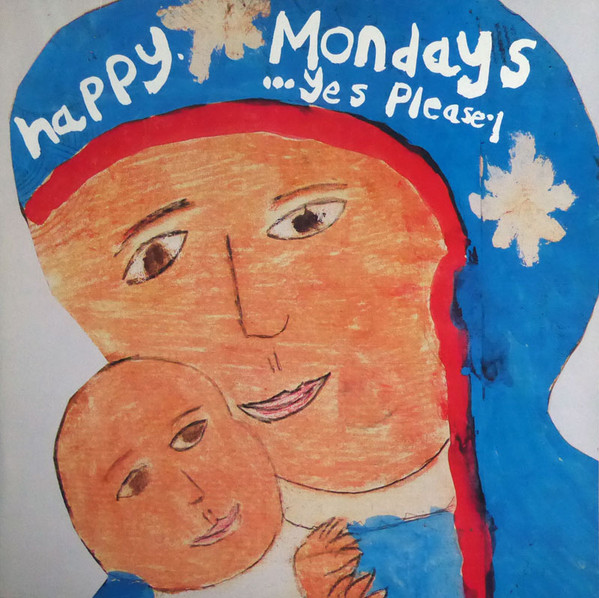 happy. Mondays
...yes Please.!